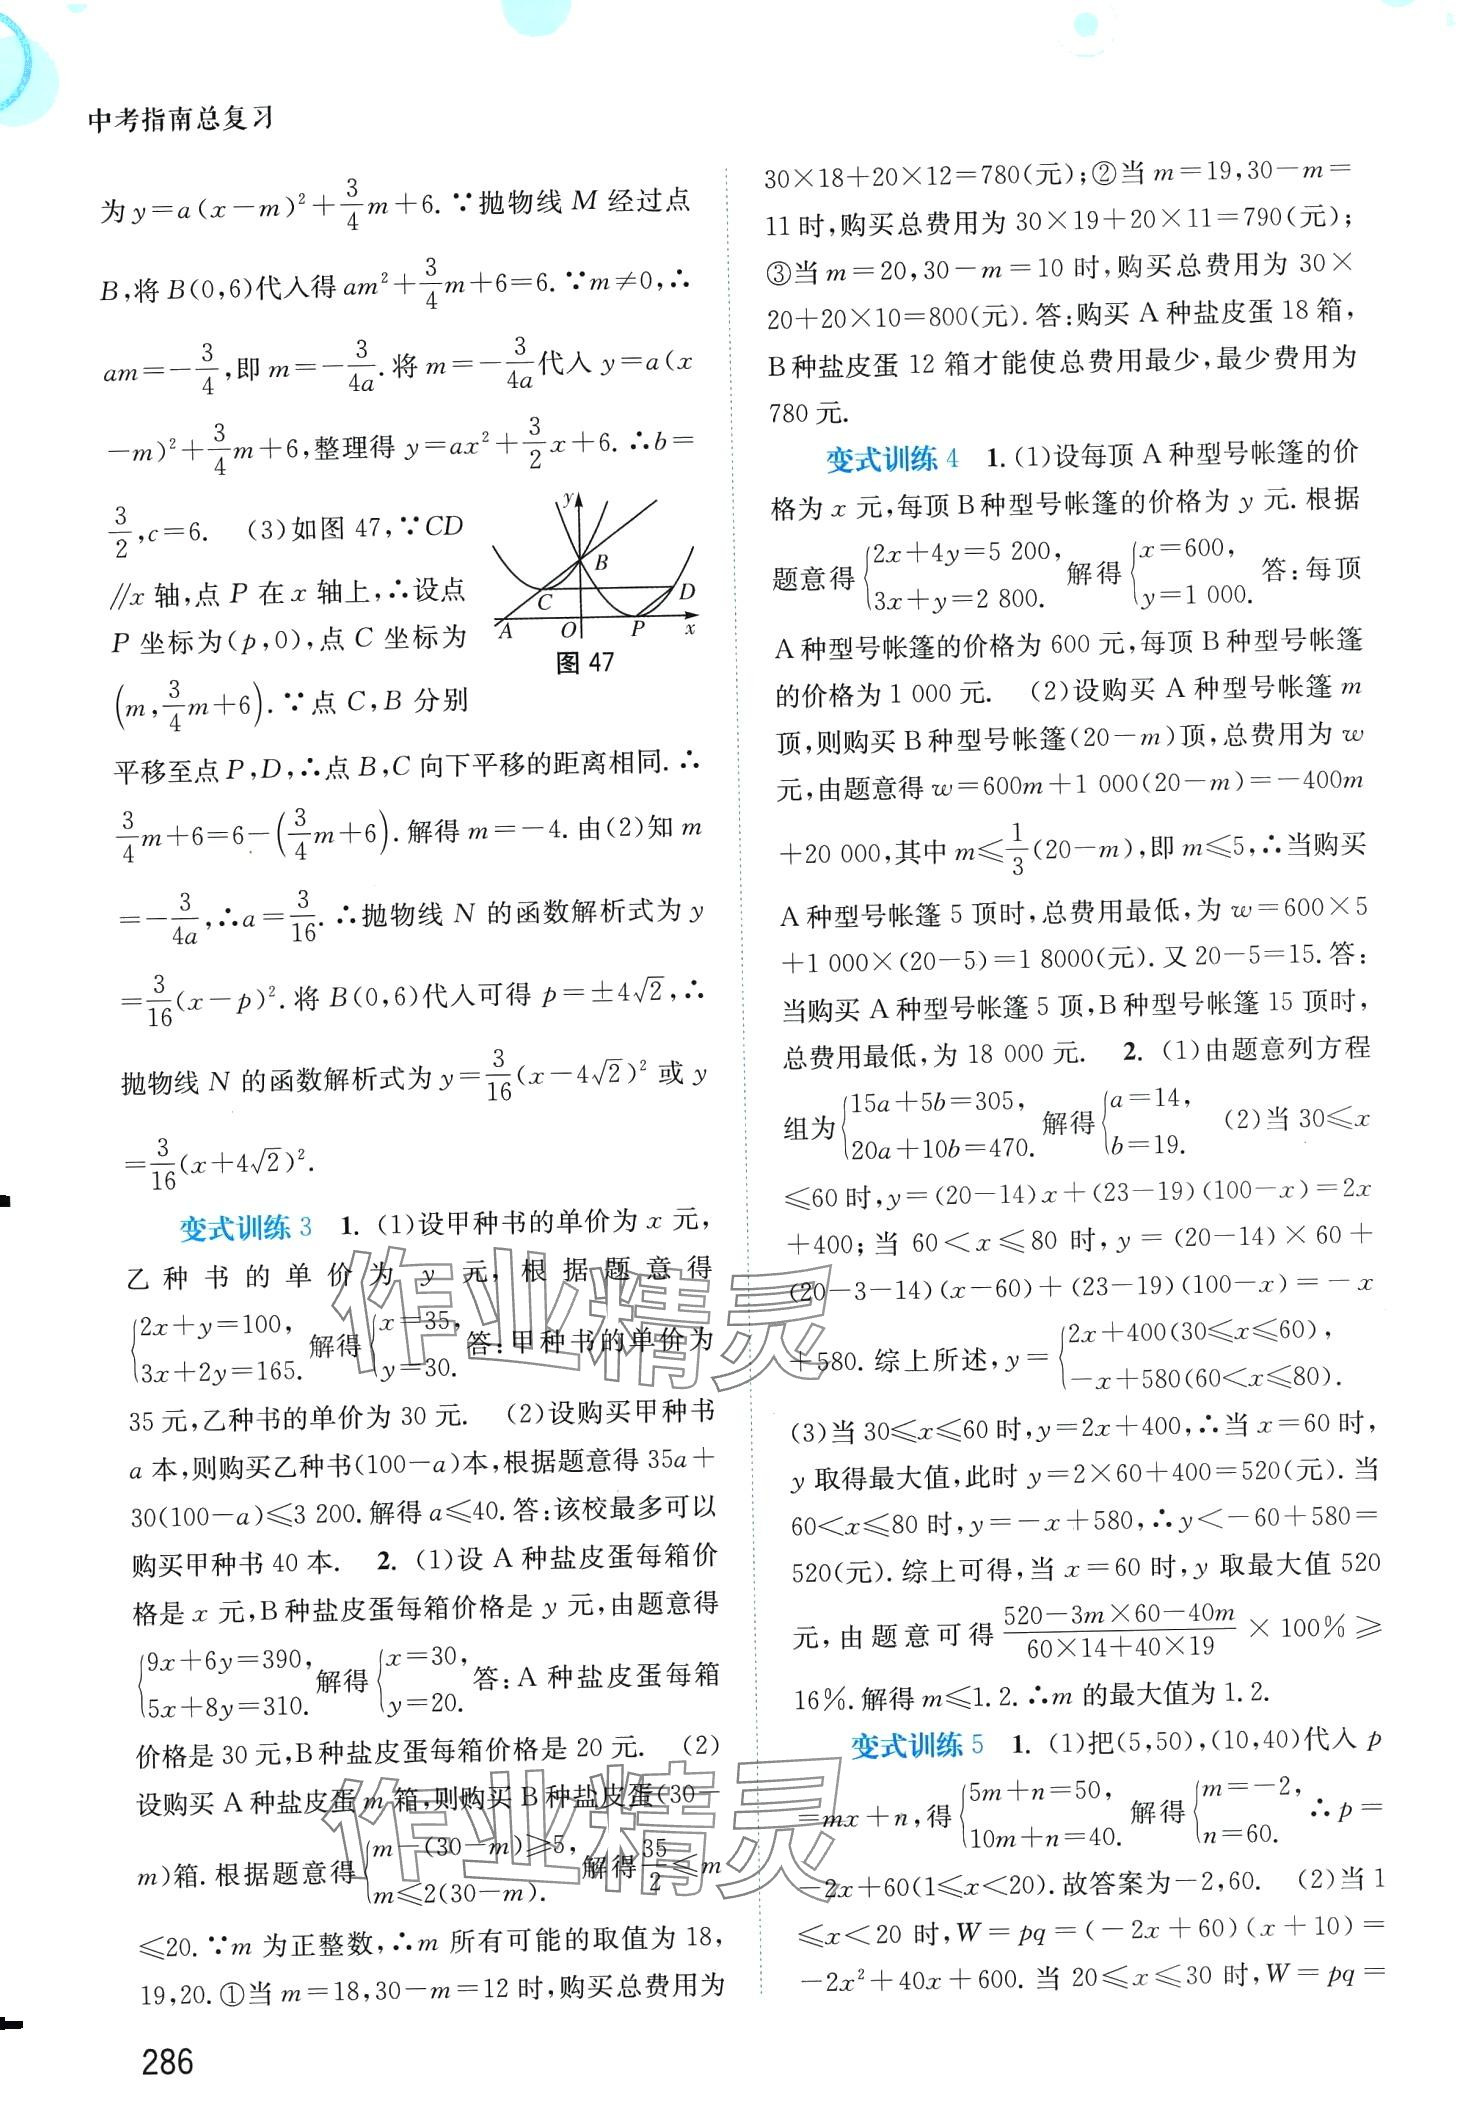 中考指南总复习
为y=a(x-m)²+3/4m+6.∵抛物线 M 经过点
B,将B(0,6)代入得am²+3/4m+6=6.∵m≠0,∴
am=-3/4,即m=-3/4a.将m=-3/4a代入 y=a(x
-m)²+3/4m+6,整理得 y=ax²+3/2x+6.∴b=
3/2,c=6. (3)如图 47,∵CD
∥x 轴,点 P 在 x 轴上,∴设点
P 坐标为(p,0),点 C 坐标为
(m,3/4m+6).∵点 C,B 分别
y
B
C
D
A
O
P
x
图 47
平移至点 P,D,∴点 B,C 向下平移的距离相同.∴
3/4m+6=6-(3/4m+6).解得 m=-4.由(2)知 m
=-3/4a,∴a=3/16.∴抛物线 N 的函数解析式为 y
=3/16(x-p)².将 B(0,6)代入可得 p=±4√2,∴
抛物线 N 的函数解析式为 y=3/16(x-4√2)²或 y
=3/16(x+4√2)².
变式训练 3 1. (1)设甲种书的单价为 x 元,
乙种书的单价为 y 元,根据题意得
{2x+y=100, 3x+2y=165. 解得{x=35, y=30. 答:甲种书的单价为
35 元,乙种书的单价为 30 元. (2)设购买甲种书
a 本,则购买乙种书(100-a)本,根据题意得 35a+
30(100-a)≤3 200.解得 a≤40.答:该校最多可以
购买甲种书 40 本. 2. (1)设 A 种盐皮蛋每箱价
格是 x 元,B种盐皮蛋每箱价格是 y 元,由题意得
{9x+6y=390, 5x+8y=310. 解得{x=30, y=20. 答:A 种盐皮蛋每箱
价格是 30 元,B种盐皮蛋每箱价格是 20 元. (2)
设购买 A 种盐皮蛋 m 箱,则购买 B 种盐皮蛋(30-
m)箱.根据题意得{m-(30-m)≥5, m≤2(30-m). 解得35/2≤m
≤20.∵m 为正整数,∴m 所有可能的取值为 18,
19,20.①当 m=18,30-m=12 时,购买总费用为
286
30×18+20×12=780(元);②当 m=19,30-m=
11 时,购买总费用为 30×19+20×11=790(元);
③当 m=20,30-m=10 时,购买总费用为 30×
20+20×10=800(元).答:购买 A 种盐皮蛋 18 箱,
B 种盐皮蛋 12 箱才能使总费用最少,最少费用为
780 元.
变式训练 4 1. (1)设每顶 A 种型号帐篷的价
格为 x 元,每顶 B种型号帐篷的价格为 y 元.根据
题意得{2x+4y=5 200, 3x+y=2 800. 解得{x=600, y=1 000. 答:每顶
A 种型号帐篷的价格为 600 元,每顶 B 种型号帐篷
的价格为 1 000 元. (2)设购买 A 种型号帐篷 m
顶,则购买 B 种型号帐篷(20-m)顶,总费用为 w
元,由题意得 w=600m+1 000(20-m)=-400m
+20 000,其中 m≤1/3(20-m),即 m≤5,∴当购买
A 种型号帐篷 5 顶时,总费用最低,为 w=600×5
+1 000×(20-5)=1 8000(元).又 20-5=15.答:
当购买 A 种型号帐篷 5 顶,B 种型号帐篷 15 顶时,
总费用最低,为 18 000 元. 2. (1)由题意列方程
组为{15a+5b=305, 20a+10b=470. 解得{a=14, b=19. (2)当 30≤x
≤60 时,y=(20-14)x+(23-19)(100-x)=2x
+400;当 60<x≤80 时,y=(20-14)×60+
(20-3-14)(x-60)+(23-19)(100-x)=-x
+580.综上所述,y={2x+400(30≤x≤60), -x+580(60<x≤80).
(3)当 30≤x≤60 时,y=2x+400,∴当 x=60 时,
y 取得最大值,此时 y=2×60+400=520(元).当
60<x≤80 时,y=-x+580,∴y<-60+580=
520(元).综上可得,当 x=60 时,y 取最大值 520
元,由题意可得 (520-3m×60-40m)/(60×14+40×19) ×100%≥
16%.解得 m≤1.2.∴m 的最大值为 1.2.
变式训练 5 1. (1)把(5,50),(10,40)代入 p
=mx+n,得{5m+n=50, 10m+n=40. 解得{m=-2, n=60. ∴p=
-2x+60(1≤x<20).故答案为-2,60. (2)当 1
≤x<20 时,W=pq=(-2x+60)(x+10)=
-2x²+40x+600.当 20≤x≤30 时,W=pq=
作业精灵
作业精灵